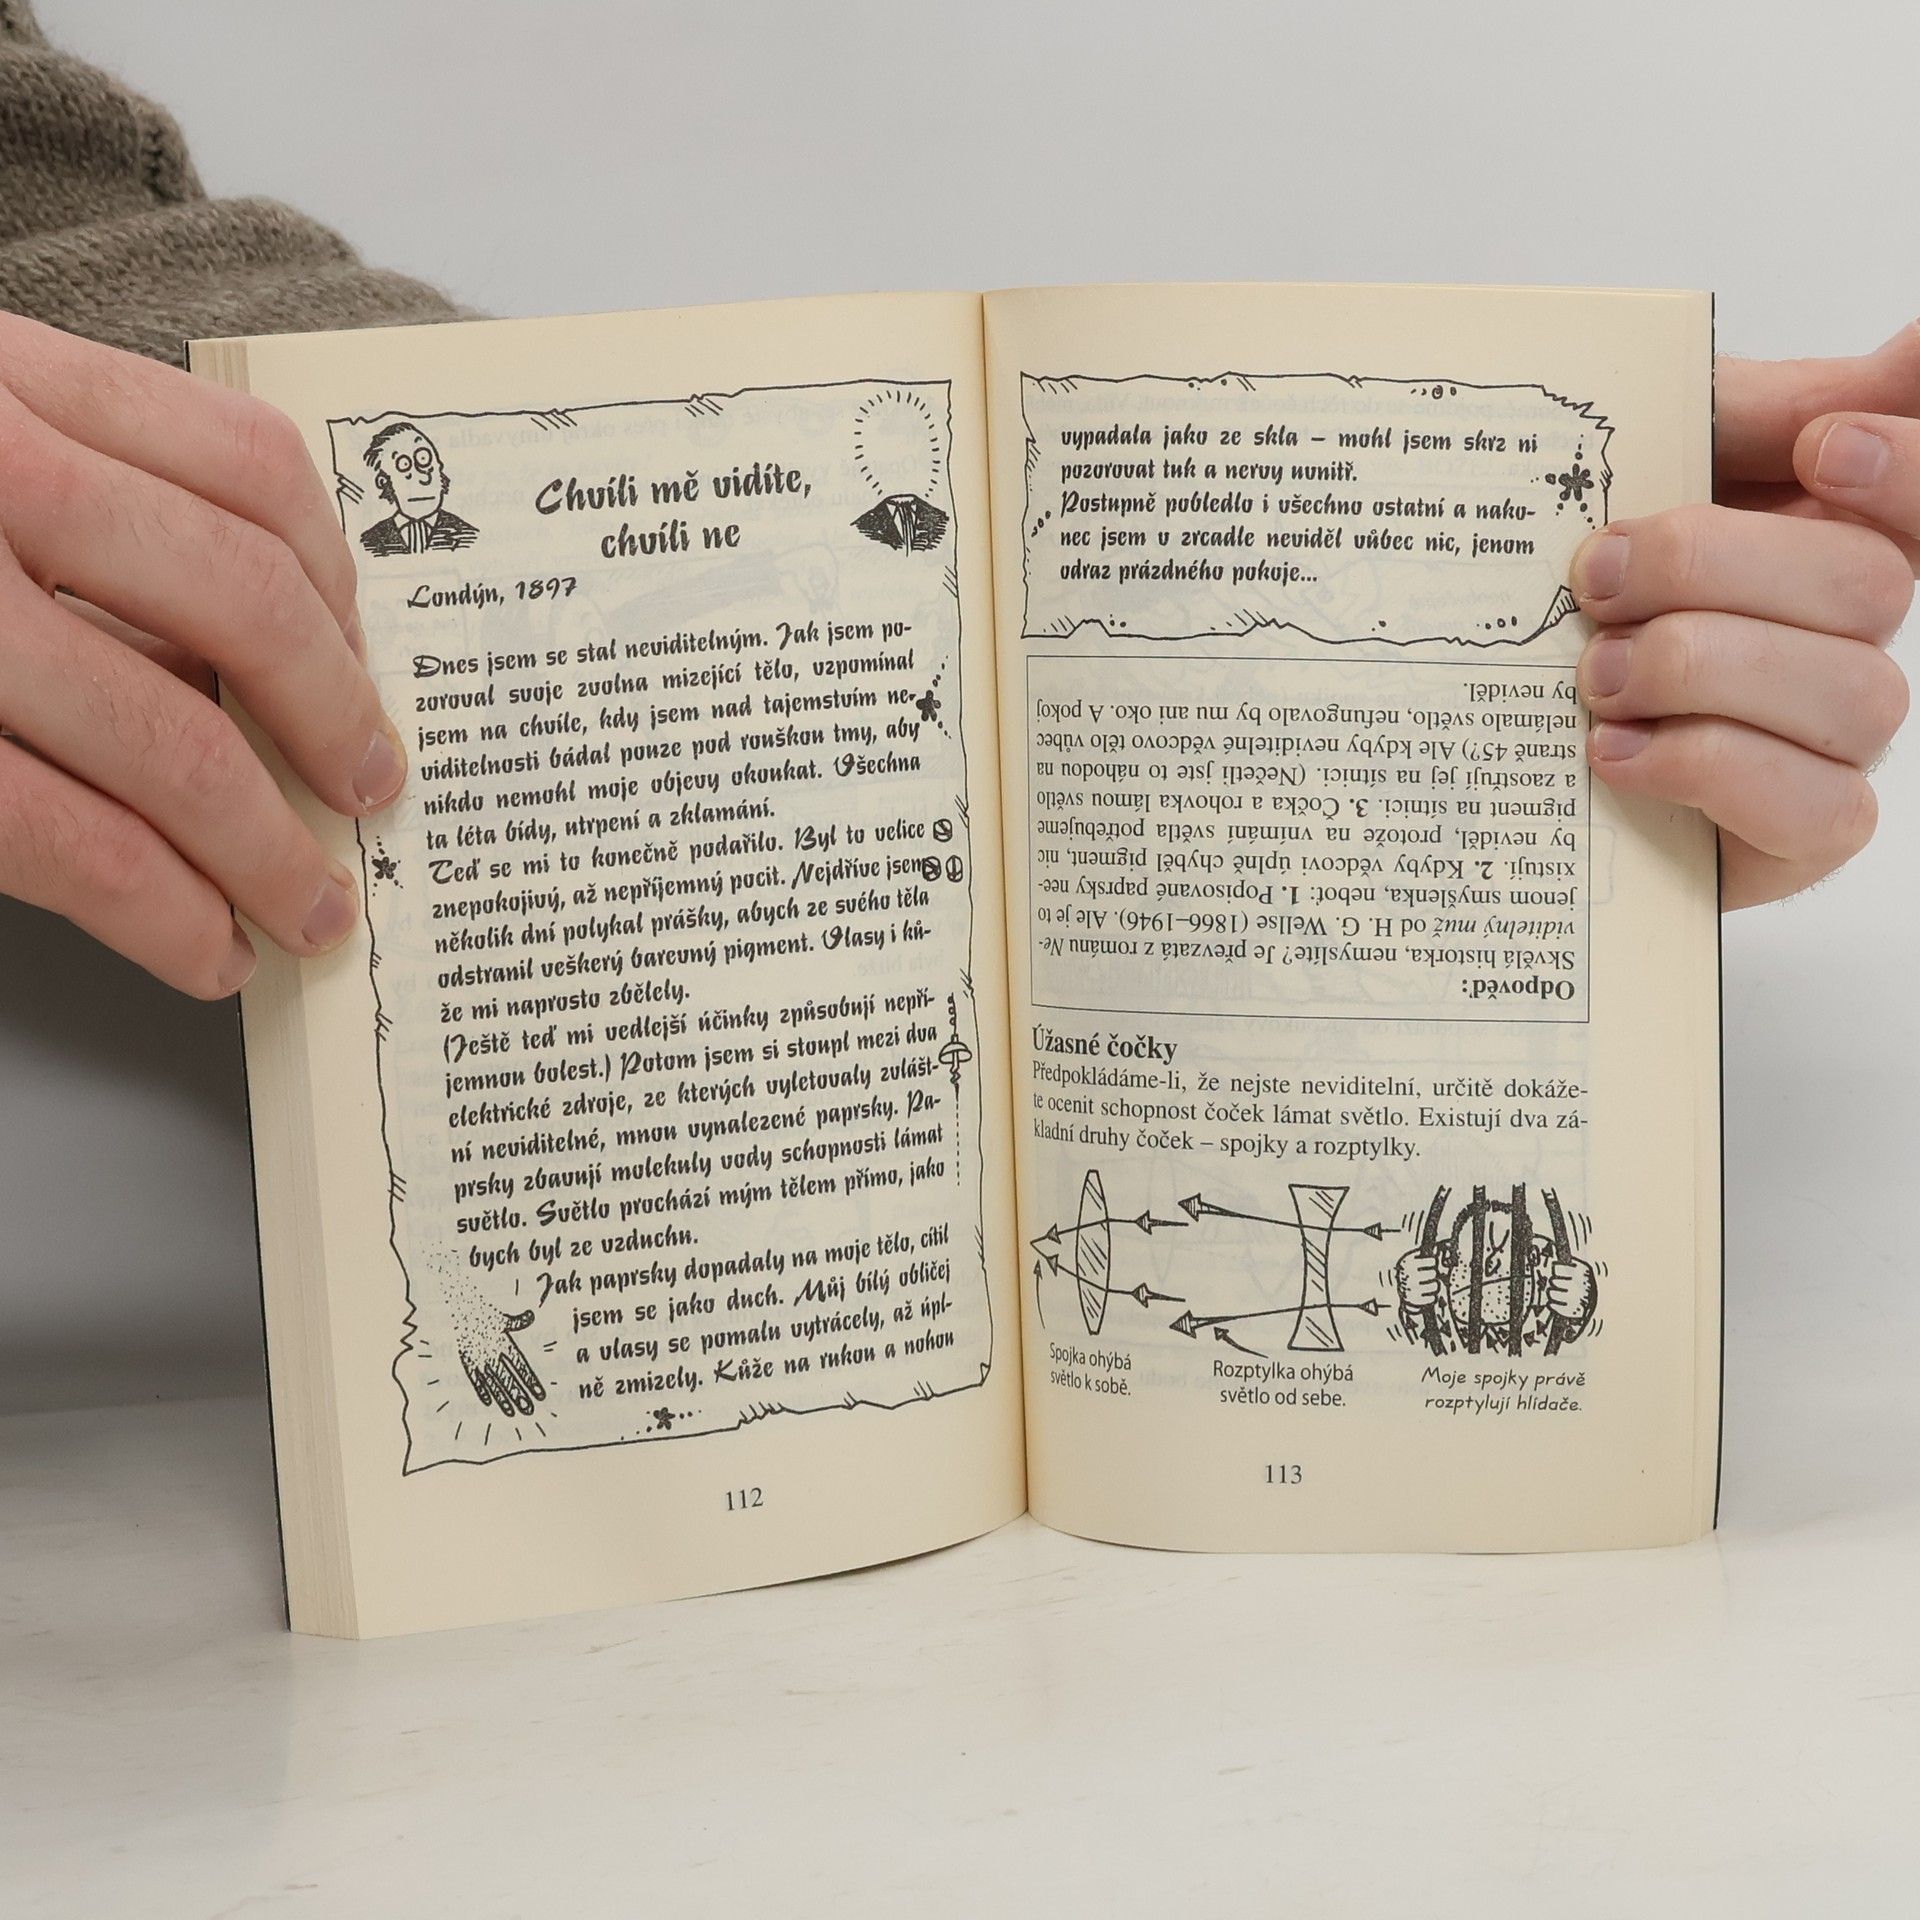 Chvíli mě vidíte,
chvíli ne
Londýn, 1897
Dnes jsem se stal neviditelným. Jak jsem po-
zoroval svoje zvolna mizející tělo, vzpomínal
jsem na chvíle, kdy jsem nad tajemstvím ne-
viditelnosti bádal pouze pod rouškou tmy, aby
nikdo nemohl moje objevy okoukat. Všechna
ta léta bídy, utrpení a zklamání.
Teď se mi to konečně podařilo. Byl to velice
znepokojivý, až nepříjemný pocit. Nejdříve jsem
několik dní polykal prášky, abych ze svého těla
odstranil veškerý barevný pigment. Vlasy i ků-
že mi naprosto zbělely.
(Ještě teď mi vedlejší účinky způsobují nepří-
jemnou bolest.) Potom jsem si stoupl mezi dva
elektrické zdroje, ze kterých vyletovaly zvlášt-
ní neviditelné, mnou vynalezené paprsky. Pa-
prsky zbavují molekuly vody schopnosti lámat
světlo. Světlo prochází mým tělem přímo, jako
bych byl ze vzduchu.
Jak paprsky dopadaly na moje tělo, cítil
jsem se jako duch. Můj bílý obličej
a vlasy se pomalu vytrácely, až úpl-
ně zmizely. Kůže na rukou a nohou
112
vypadala jako ze skla – mohl jsem skrz ni
pozorovat tuk a nervy uvnitř.
Postupně pobledlo i všechno ostatní a nako-
nec jsem v zrcadle neviděl vůbec nic, jenom
odraz prázdného pokoje...
Odpověď:
Skvělá historka, nemyslíte? Je převzatá z románu Ne-
viditelný muž od H. G. Wellse (1866–1946). Ale je to
jenom smyšlenka, neboť: 1. Popisované paprsky nee-
xistují. 2. Kdyby vědcovi úplně chyběl pigment, nic
by neviděl, protože na vnímání světla potřebujeme
pigment na sítnici. 3. Čočka a rohovka lámou světlo
a zaostřují jej na sítnici. (Nečetli jste to náhodou na
straně 45?) Ale kdyby neviditelné vědcovo tělo vůbec
nelámalo světlo, nefungovalo by mu ani oko. A pokoj
by neviděl.
Úžasné čočky
Předpokládáme-li, že nejste neviditelní, určitě dokáže-
te ocenit schopnost čoček lámat světlo. Existují dva zá-
kladní druhy čoček – spojky a rozptylky.
Spojka ohýbá
světlo k sobě.
Rozptylka ohýbá
světlo od sebe.
Moje spojky právě
rozptylují hlídače.
113